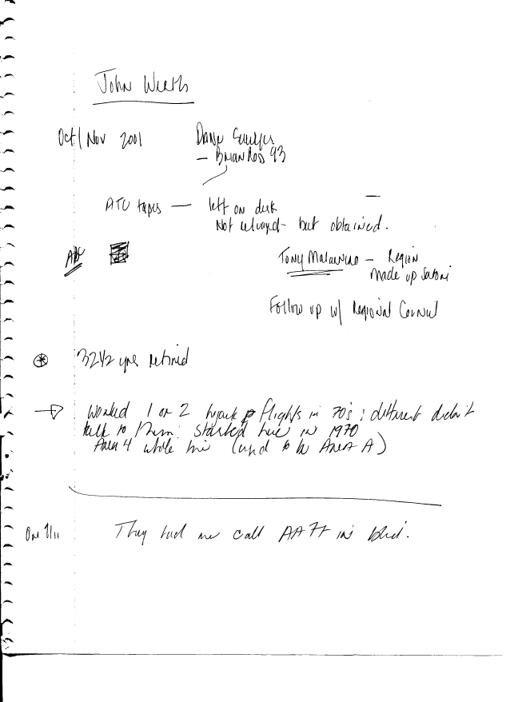 John Werth
Oct/Nov 2001 Diane Sawyer
— Brian Ross 93
ATC tapes — left on desk —
Not released - but obtained.
ABC
Tony – Region
made up
Follow up w/ Regional Counsel
32 1/2 yrs retired
Worked 1 or 2 hijack flights in 70's: different didn't
talk to them. started here in 1970
Area 4 whole time (used to be Area A)
On 9/11 They had me call AA77 in blind.